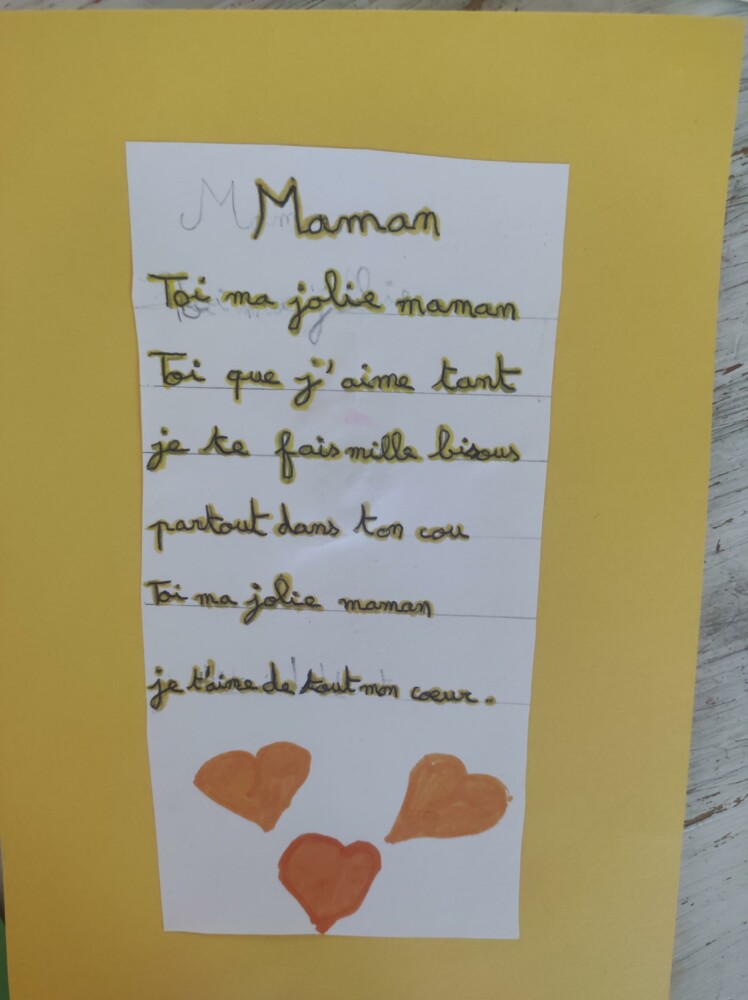 Maman
Toi ma jolie maman
Toi que j'aime tant
je te fais mille bisous
partout dans ton cou
Toi ma jolie maman
je t'aime de tout mon coeur.